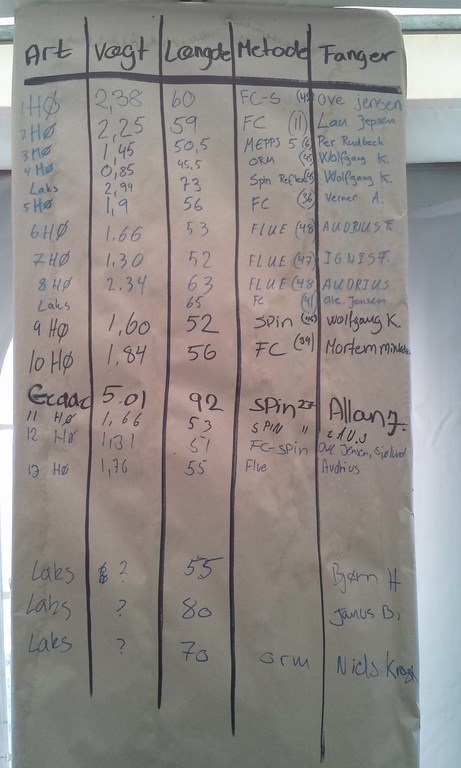 Art Vægt Længde Metode Fanger
1 HØ 2,38 60 FC-S (42) Ove Jensen
2 HØ 2,25 59 FC (11) Lau Jepsen
3 HØ 1,45 50,5 MEPPS 5 Per
4 HØ 0,85 45,5 orm (45) Wolfgang K.
Laks 2,99 73 Spin Reflex Wolfgang K.
5 HØ 1,9 56 FC (36) Verner A.
6 HØ 1.66 53 FLUE (48) AUDRIUS F.
7 HØ 1,30 52 FLUE (47) IGNIS F.
8 HØ 2.34 63 FLUE (48 AUDRIUS
Laks 65 FC (41) Ove Jensen
9 HØ 1,60 52 Spin Wolfgang K.
10 HØ 1,84 56 FC (34) Morten
5.01 92 Spin 27 Allan J.
11 HØ 1,66 53 SPIN "
12 HØ 1,31 51 FC-Spin Ove Jensen,
13 HØ 1,76 55 Flue Audrius
Laks ? 55 Bjørn H
Laks ? 80 Janus B,
Laks ? 70 orm Niels